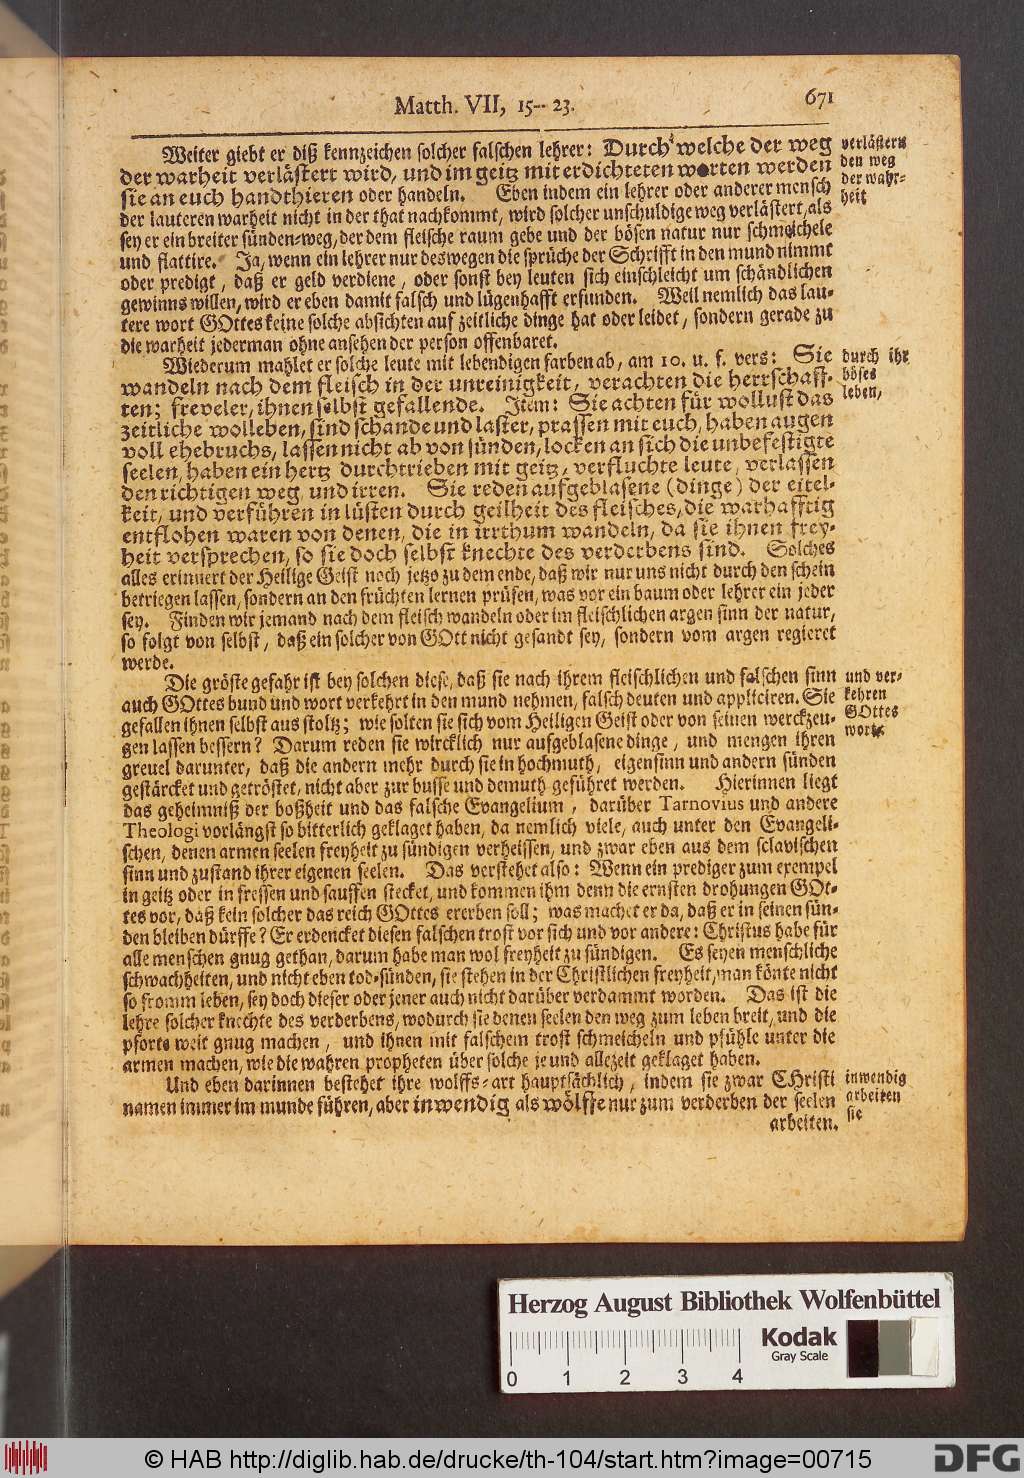 Matth. VII, 15-- 23.
671
Weiter giebt er diß kennzeichen solcher falschen lehrer: Durch welche der weg
der warheit verlästert wird, und im geitz mit erdichteten worten werden
sie an euch handthieren oder handeln. Eben indem ein lehrer oder anderer mensch
der lauteren warheit nicht in der that nachkommt, wird solcher unschuldige weg verlästert, als
sey er ein breiter sünden-weg, der dem fleische raum gebe und der bösen natur nur schmeichele
und flattire. Ja, wenn ein lehrer nur deswegen die sprüche der Schrifft in den mund nimmt
oder predigt, daß er geld verdiene, oder sonst bey leuten sich einschleicht um schändlichen
gewinns willen, wird er eben damit falsch und lügenhafft erfunden. Weil nemlich das lau-
tere wort GOttes keine solche absichten auf zeitliche dinge hat oder leidet, sondern gerade zu
die warheit jederman ohne ansehen der person offenbaret.
verlästern
den weg
der wahr-
heit
Wiederum mahlet er solche leute mit lebendigen farben ab, am 10. u. f. vers: Sie
wandeln nach dem fleisch in der unreinigkeit, verachten die herrschaff-
ten; freveler, ihnen selbst gefallende. Item: Sie achten für wollust das
zeitliche wolleben, sind schande und laster, prassen mit euch, haben augen
voll ehebruchs, lassen nicht ab von sünden, locken an sich die unbefestigte
seelen, haben ein hertz durchtrieben mit geitz, verfluchte leute, verlassen
den richtigen weg und irren. Sie reden aufgeblasene (dinge) der eitel-
keit, und verführen in lüsten durch geilheit des fleisches, die warhafftig
entflohen waren von denen, die in irrthum wandeln, da sie ihnen frey-
heit versprechen, so sie doch selbst knechte des verderbens sind. Solches
alles erinnert der Heilige Geist noch jetzo zu dem ende, daß wir nur uns nicht durch den schein
betriegen lassen, sondern an den früchten lernen prüfen, was vor ein baum oder lehrer ein jeder
sey. Finden wir jemand nach dem fleisch wandeln oder im fleischlichen argen sinn der natur,
so folgt von selbst, daß ein solcher von GOtt nicht gesandt sey, sondern vom argen regieret
werde.
durch ihr
böses
leben,
Die gröste gefahr ist bey solchen diese, daß sie nach ihrem fleischlichen und falschen sinn
auch GOttes bund und wort verkehrt in den mund nehmen, falsch deuten und appliciren. Sie
gefallen ihnen selbst aus stoltz; wie solten sie sich vom Heiligen Geist oder von seinen werckzeu-
gen lassen bessern? Darum reden sie wircklich nur aufgeblasene dinge, und mengen ihren
greuel darunter, daß die andern mehr durch sie in hochmuth, eigensinn und andern sünden
gestärcket und getröstet, nicht aber zur busse und demuth geführet werden. Hierinnen liegt
das geheimniß der boßheit und das falsche Evangelium, darüber Tarnovius und andere
Theologi vorlängst so bitterlich geklaget haben, da nemlich viele, auch unter den Evangeli-
schen, denen armen seelen freyheit zu sündigen verheissen, und zwar eben aus dem sclavischen
sinn und zustand ihrer eigenen seelen. Das verstehet also: Wenn ein prediger zum exempel
in geitz oder in fressen und sauffen stecket, und kommen ihm denn die ernsten drohungen GOt-
tes vor, daß kein solcher das reich GOttes ererben soll; was machet er da, daß er in seinen sün-
den bleiben dürffe? Er erdencket diesen falschen trost vor sich und vor andere: Christus habe für
alle menschen gnug gethan, darum habe man wol freyheit zu sündigen. Es seyen menschliche
schwachheiten, und nicht eben tod-sünden, sie stehen in der Christlichen freyheit, man könte nicht
so fromm leben, sey doch dieser oder jener auch nicht darüber verdammt worden. Das ist die
lehre solcher knechte des verderbens, wodurch sie denen seelen den weg zum leben breit, und die
pforte weit gnug machen, und ihnen mit falschem trost schmeicheln und pfühle unter die
armen machen, wie die wahren propheten über solche je und allezeit geklaget haben.
und ver-
kehren
GOttes
wort,
Und eben darinnen bestehet ihre wolffs-art hauptsächlich, indem sie zwar CHristi
namen immer im munde führen, aber inwendig als wölffe nur zum verderben der seelen
arbeiten.
inwendig
arbeiten
sie
Herzog August Bibliothek Wolfenbüttel
Kodak
Gray Scale
0 1 2 3 4
© HAB http://diglib.hab.de/drucke/th-104/start.htm?image=00715
DFG